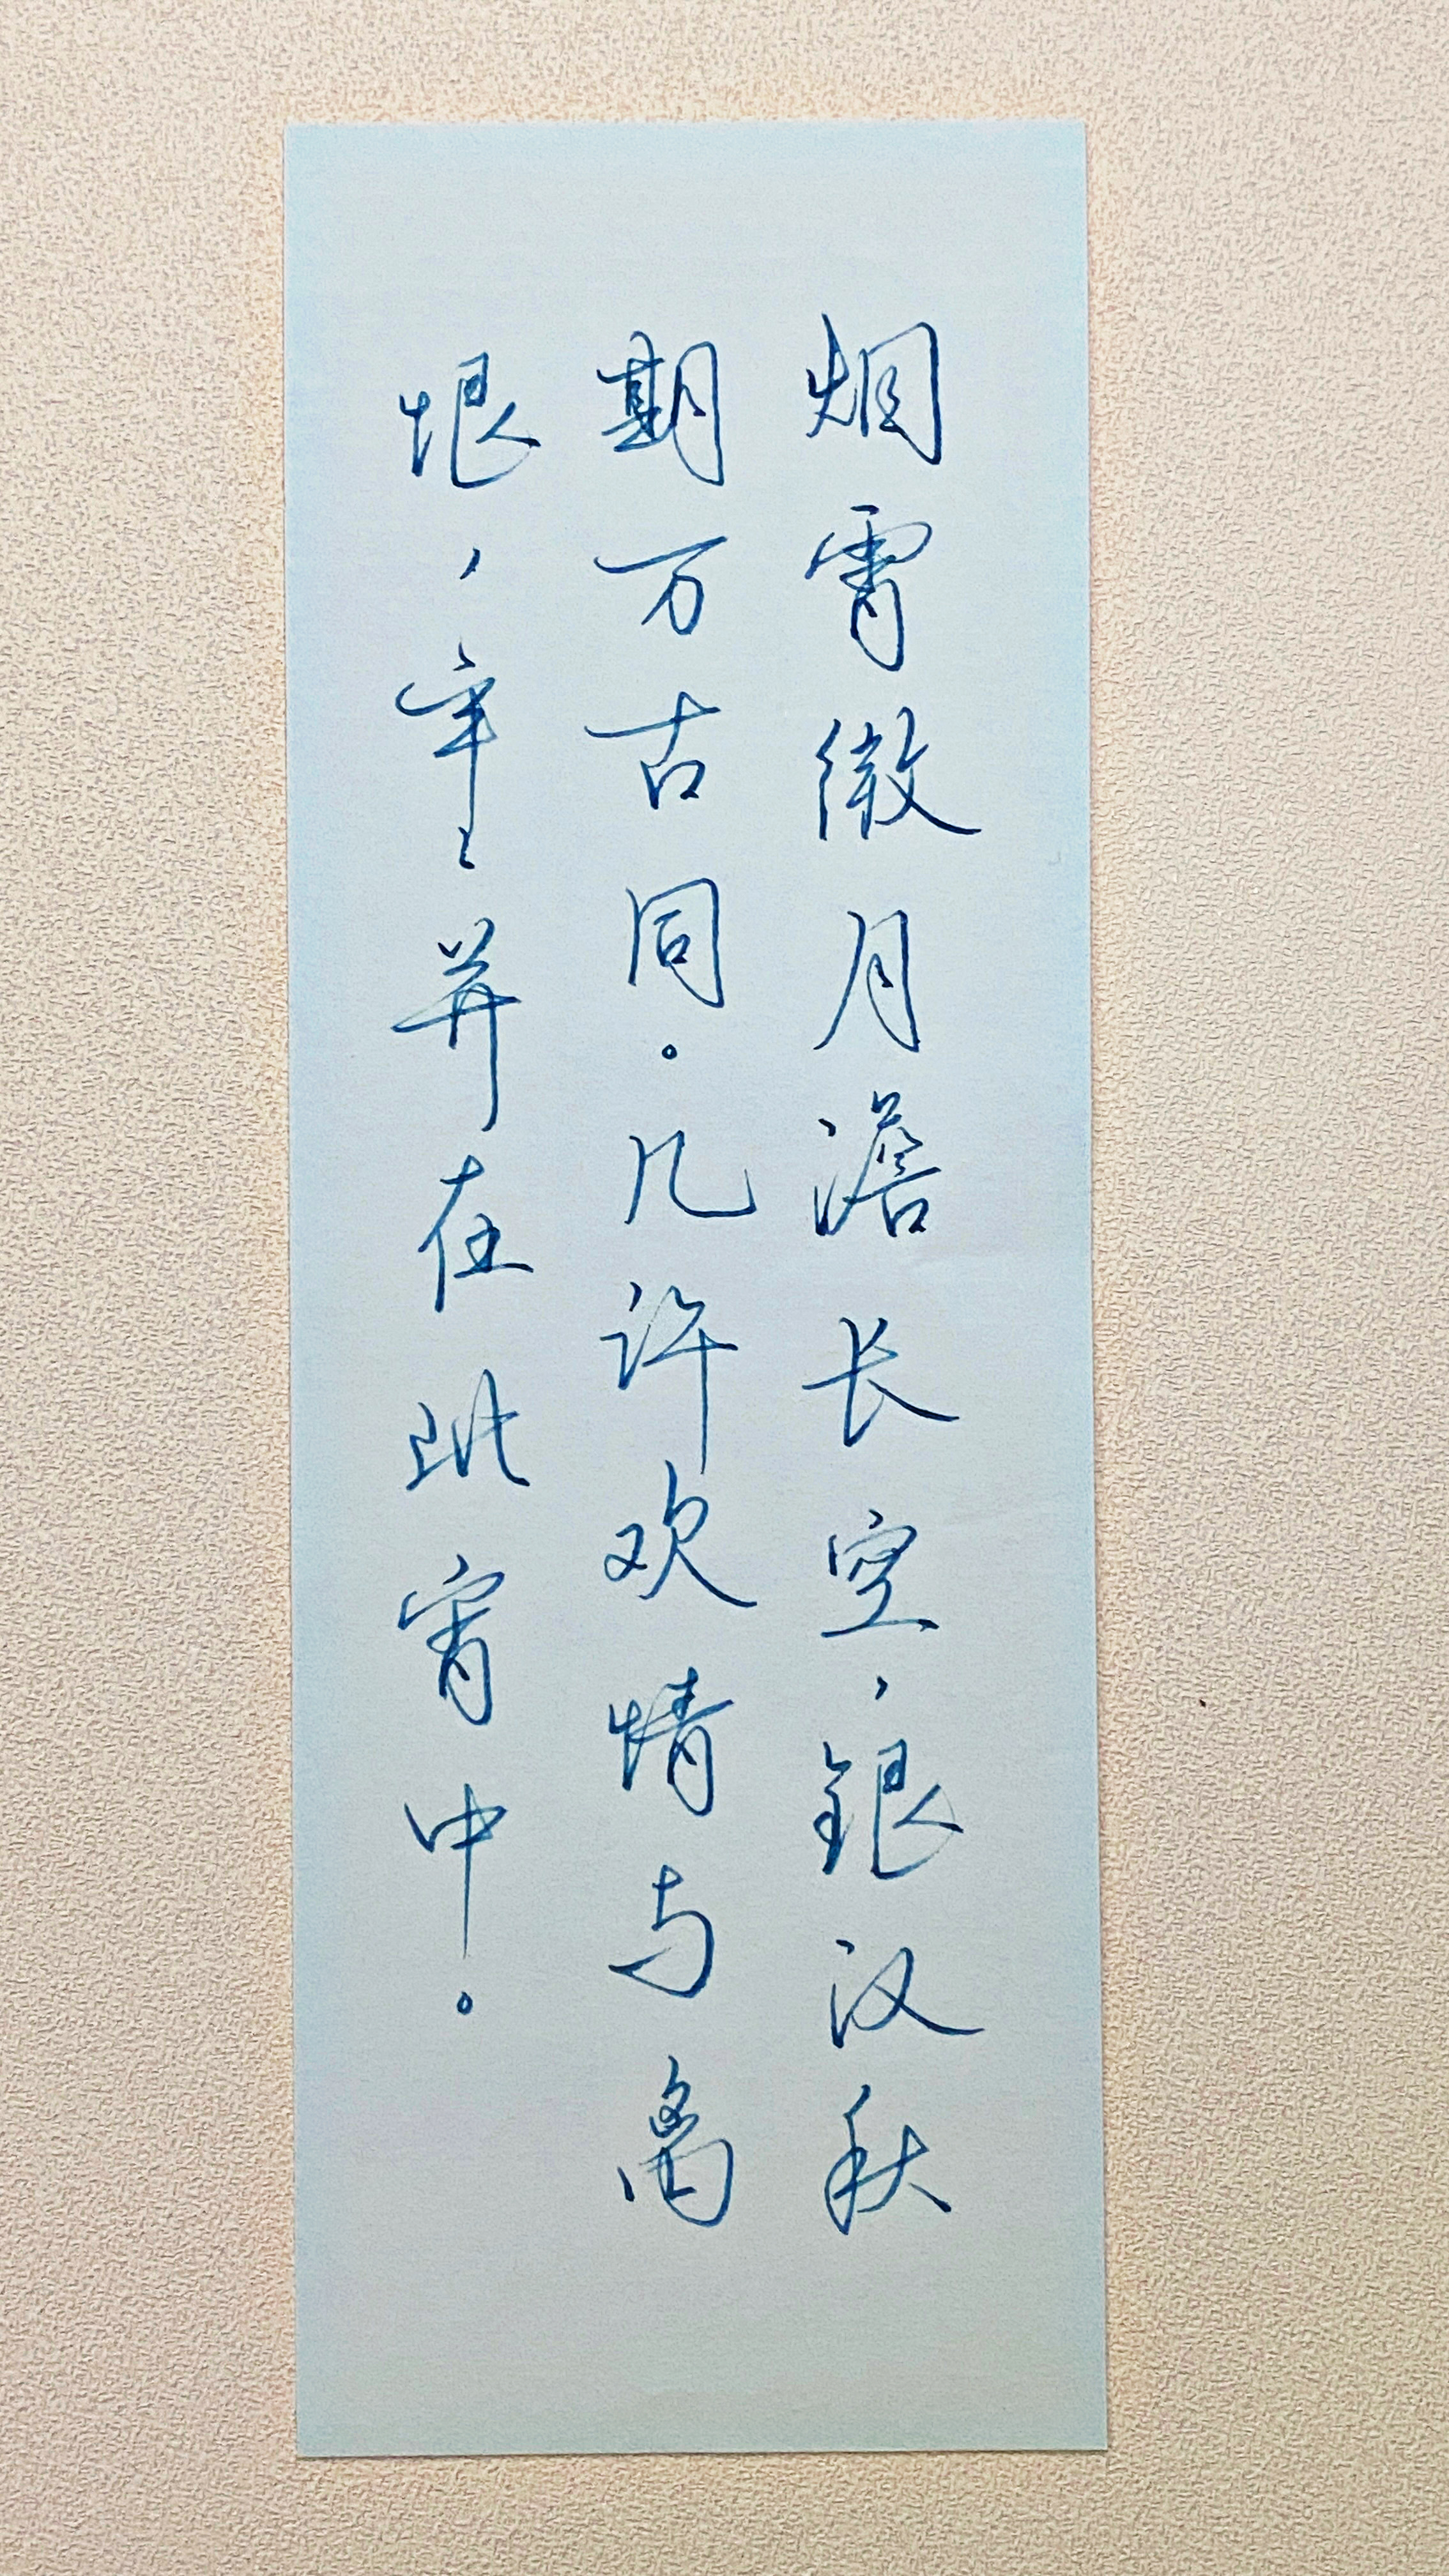 烟霄微月澹长空，银汉秋
期万古同。几许欢情与离
恨，年年并在此宵中。